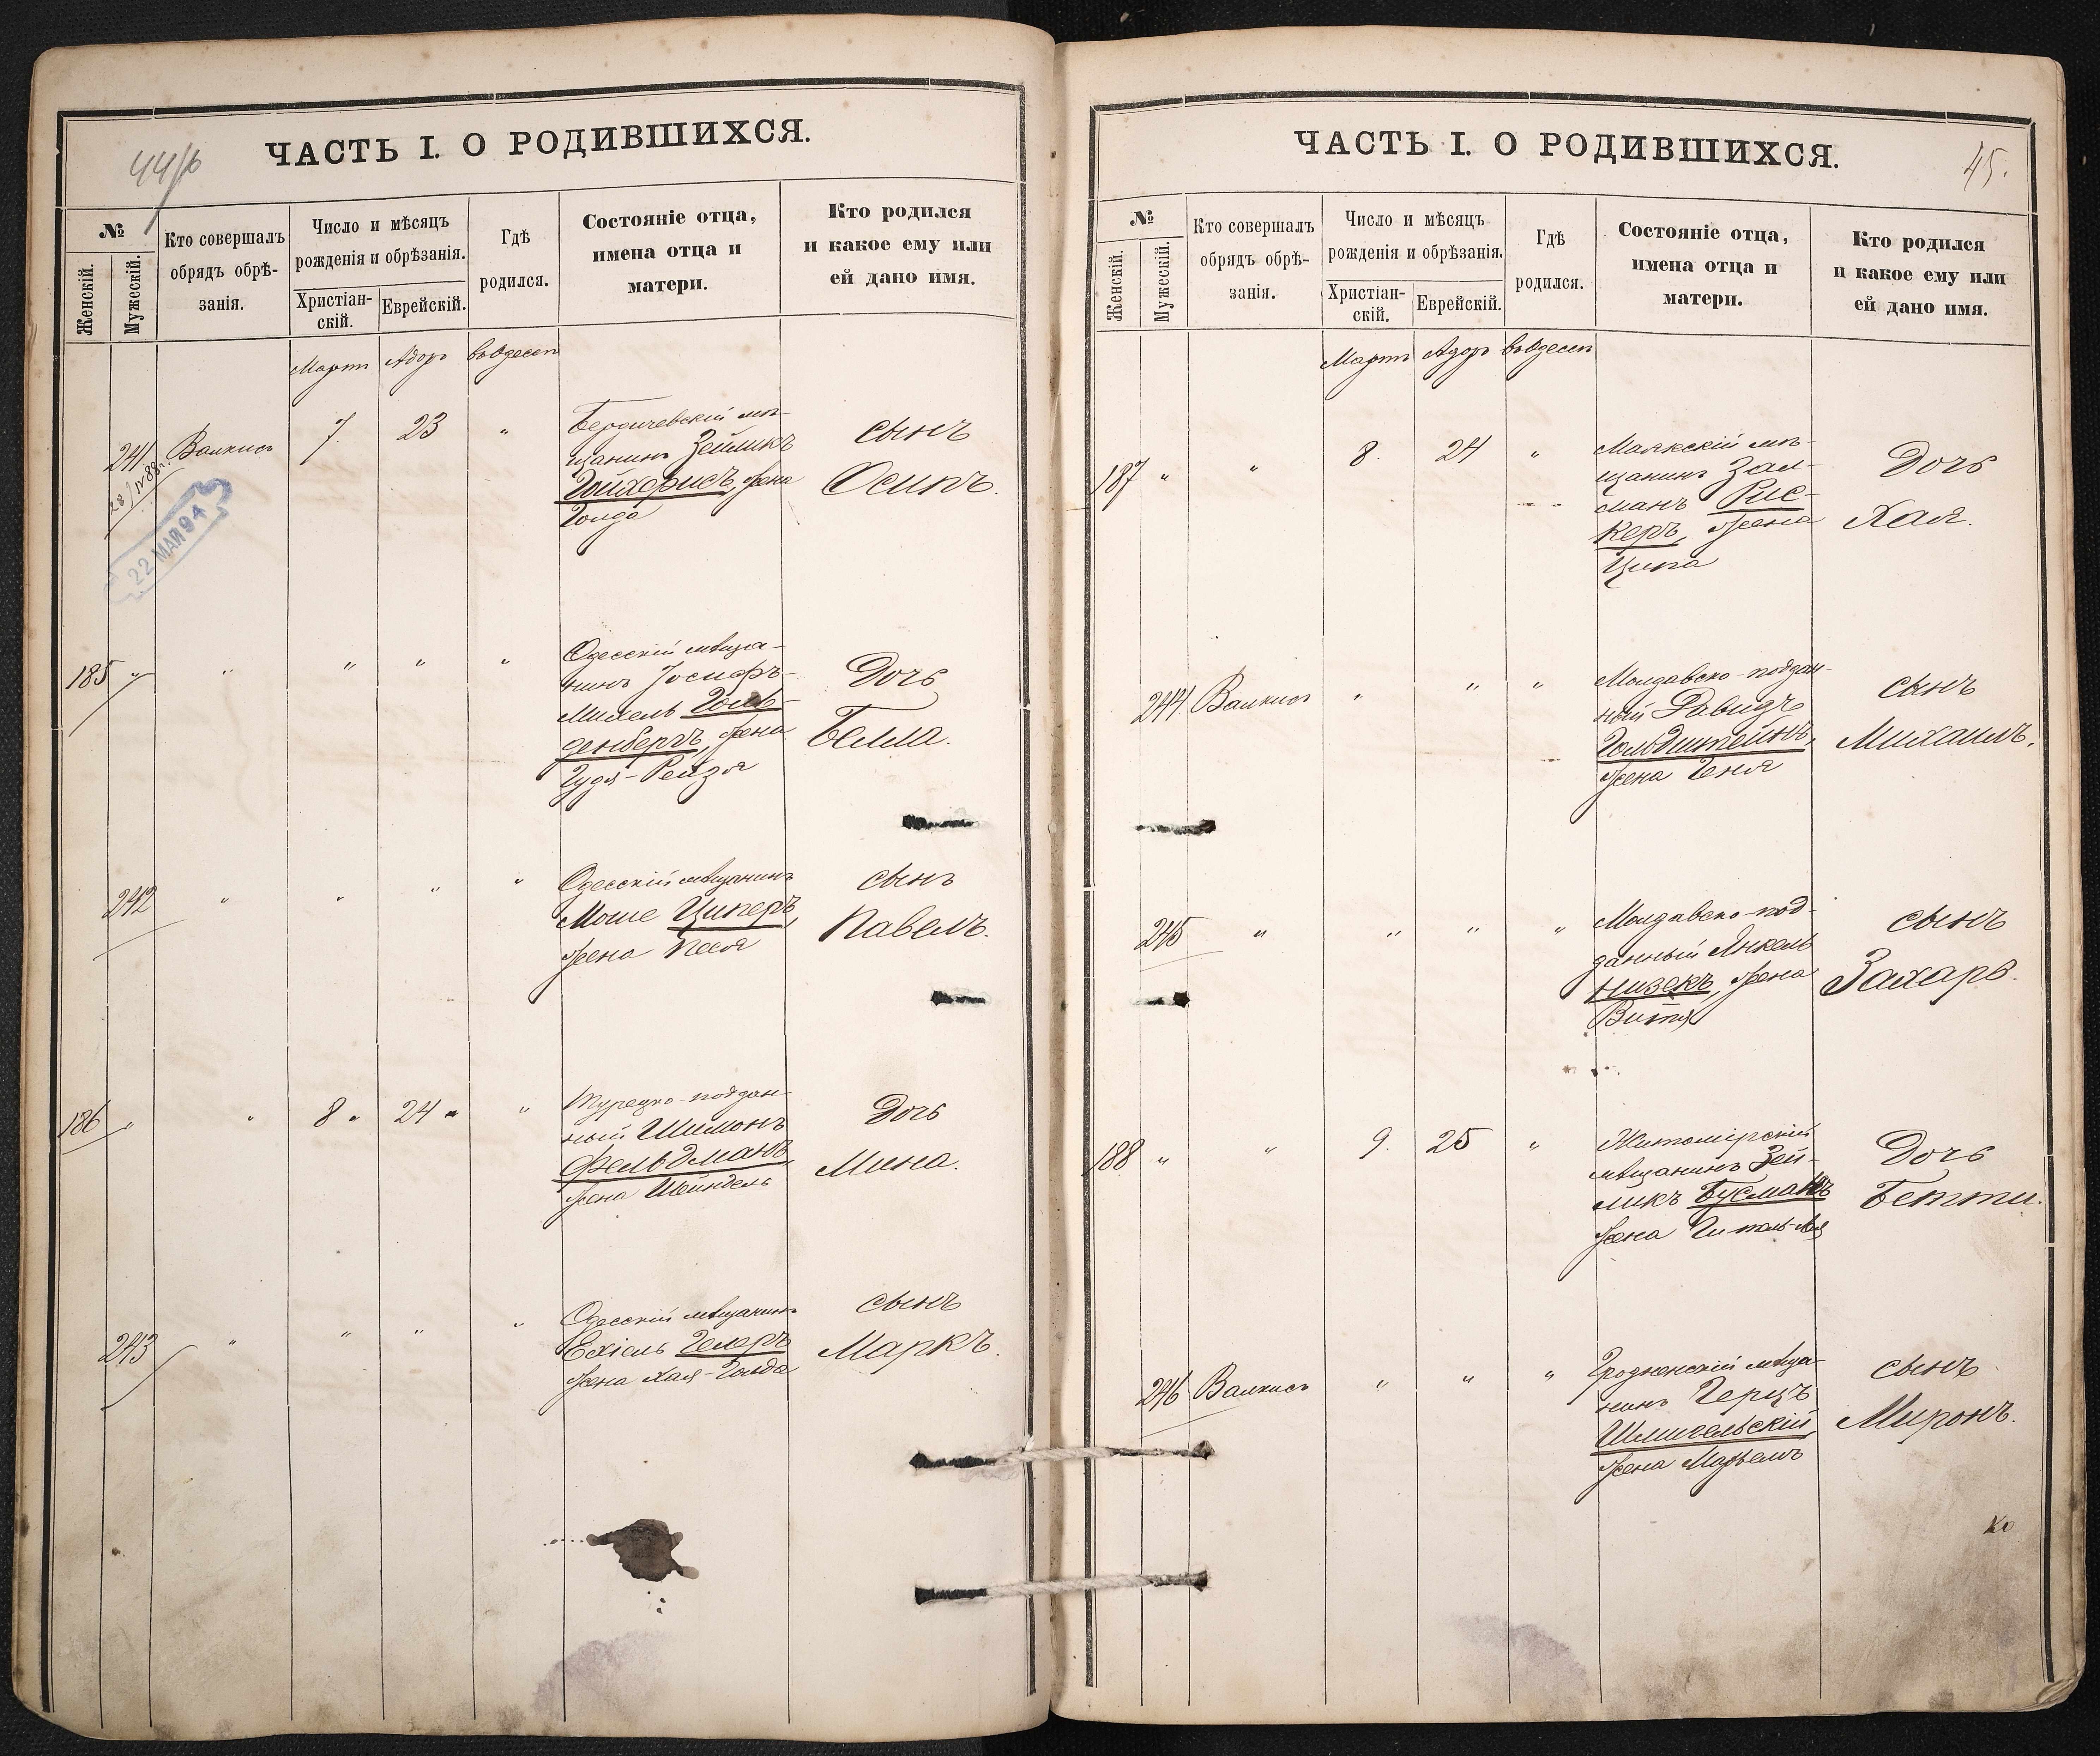 44/б
ЧАСТЬ I. О РОДИВШИХСЯ.
№
Женскій.
Мужескій.
Кто совершалъ
обрядъ обрѣ-
занія.
Число и мѣсяцъ
рожденія и обрѣзанія.
Христіан-
скій.
Еврейскій.
Гдѣ
родился.
Состояніе отца,
имена отца и
матери.
Кто родился
и какое ему или
ей дано имя.
Мартъ Адоръ въ Одессѣ
241 Валкисъ 7. 23 "
Бердичевскій мѣ-
щанинъ Зейликъ
Гойхерисъ, жена
Голда
сынъ
Осипъ.
22 МАЙ 94
185 " " " " "
Одесскій мѣща-
нинъ Іосифъ-
Михель Голь-
денбергъ, жена
Гудя-Рейзя
Дочь
Белла.
242 " " " "
Одесскій мѣщанинъ
Моше Циперъ,
жена Песя
сынъ
Павелъ.
186 " " 8 " 24 " "
Турецко-поддан-
ный Шимонъ
Фельдманъ,
жена Шейндель
Дочь
Мина.
243 " " " "
Одесскій мѣщанинъ
Ехіель Гелеръ
жена Хая-Голда
сынъ
Маркъ.
45.
ЧАСТЬ I. О РОДИВШИХСЯ.
№
Женскій.
Мужескій.
Кто совершалъ
обрядъ обрѣ-
занія.
Число и мѣсяцъ
рожденія и обрѣзанія.
Христіан-
скій.
Еврейскій.
Гдѣ
родился.
Состояніе отца,
имена отца и
матери.
Кто родился
и какое ему или
ей дано имя.
Мартъ Адоръ въ Одессѣ
187 " " 8. 24 "
Маякскій мѣ-
щанинъ Зал-
манъ Рис-
керъ, жена
Ципа
Дочь
Хая.
244 Валкисъ " " "
Молдавско-поддан-
ный Давидъ
Гольдштейнъ,
жена Геня
сынъ
Михаилъ.
245 " " " "
Молдавско-под-
данный Янкель
Низекъ, жена
Витя
сынъ
Захаръ.
188 " " 9. 25 "
Житомірскій
мѣщанинъ Зей-
ликъ Бусманъ
жена
Дочь
Бетти.
246 Валкисъ " " "
Гродненскій мѣща-
нинъ Герцъ
Шмигельскій,
жена Марьемъ
сынъ
Миронъ.